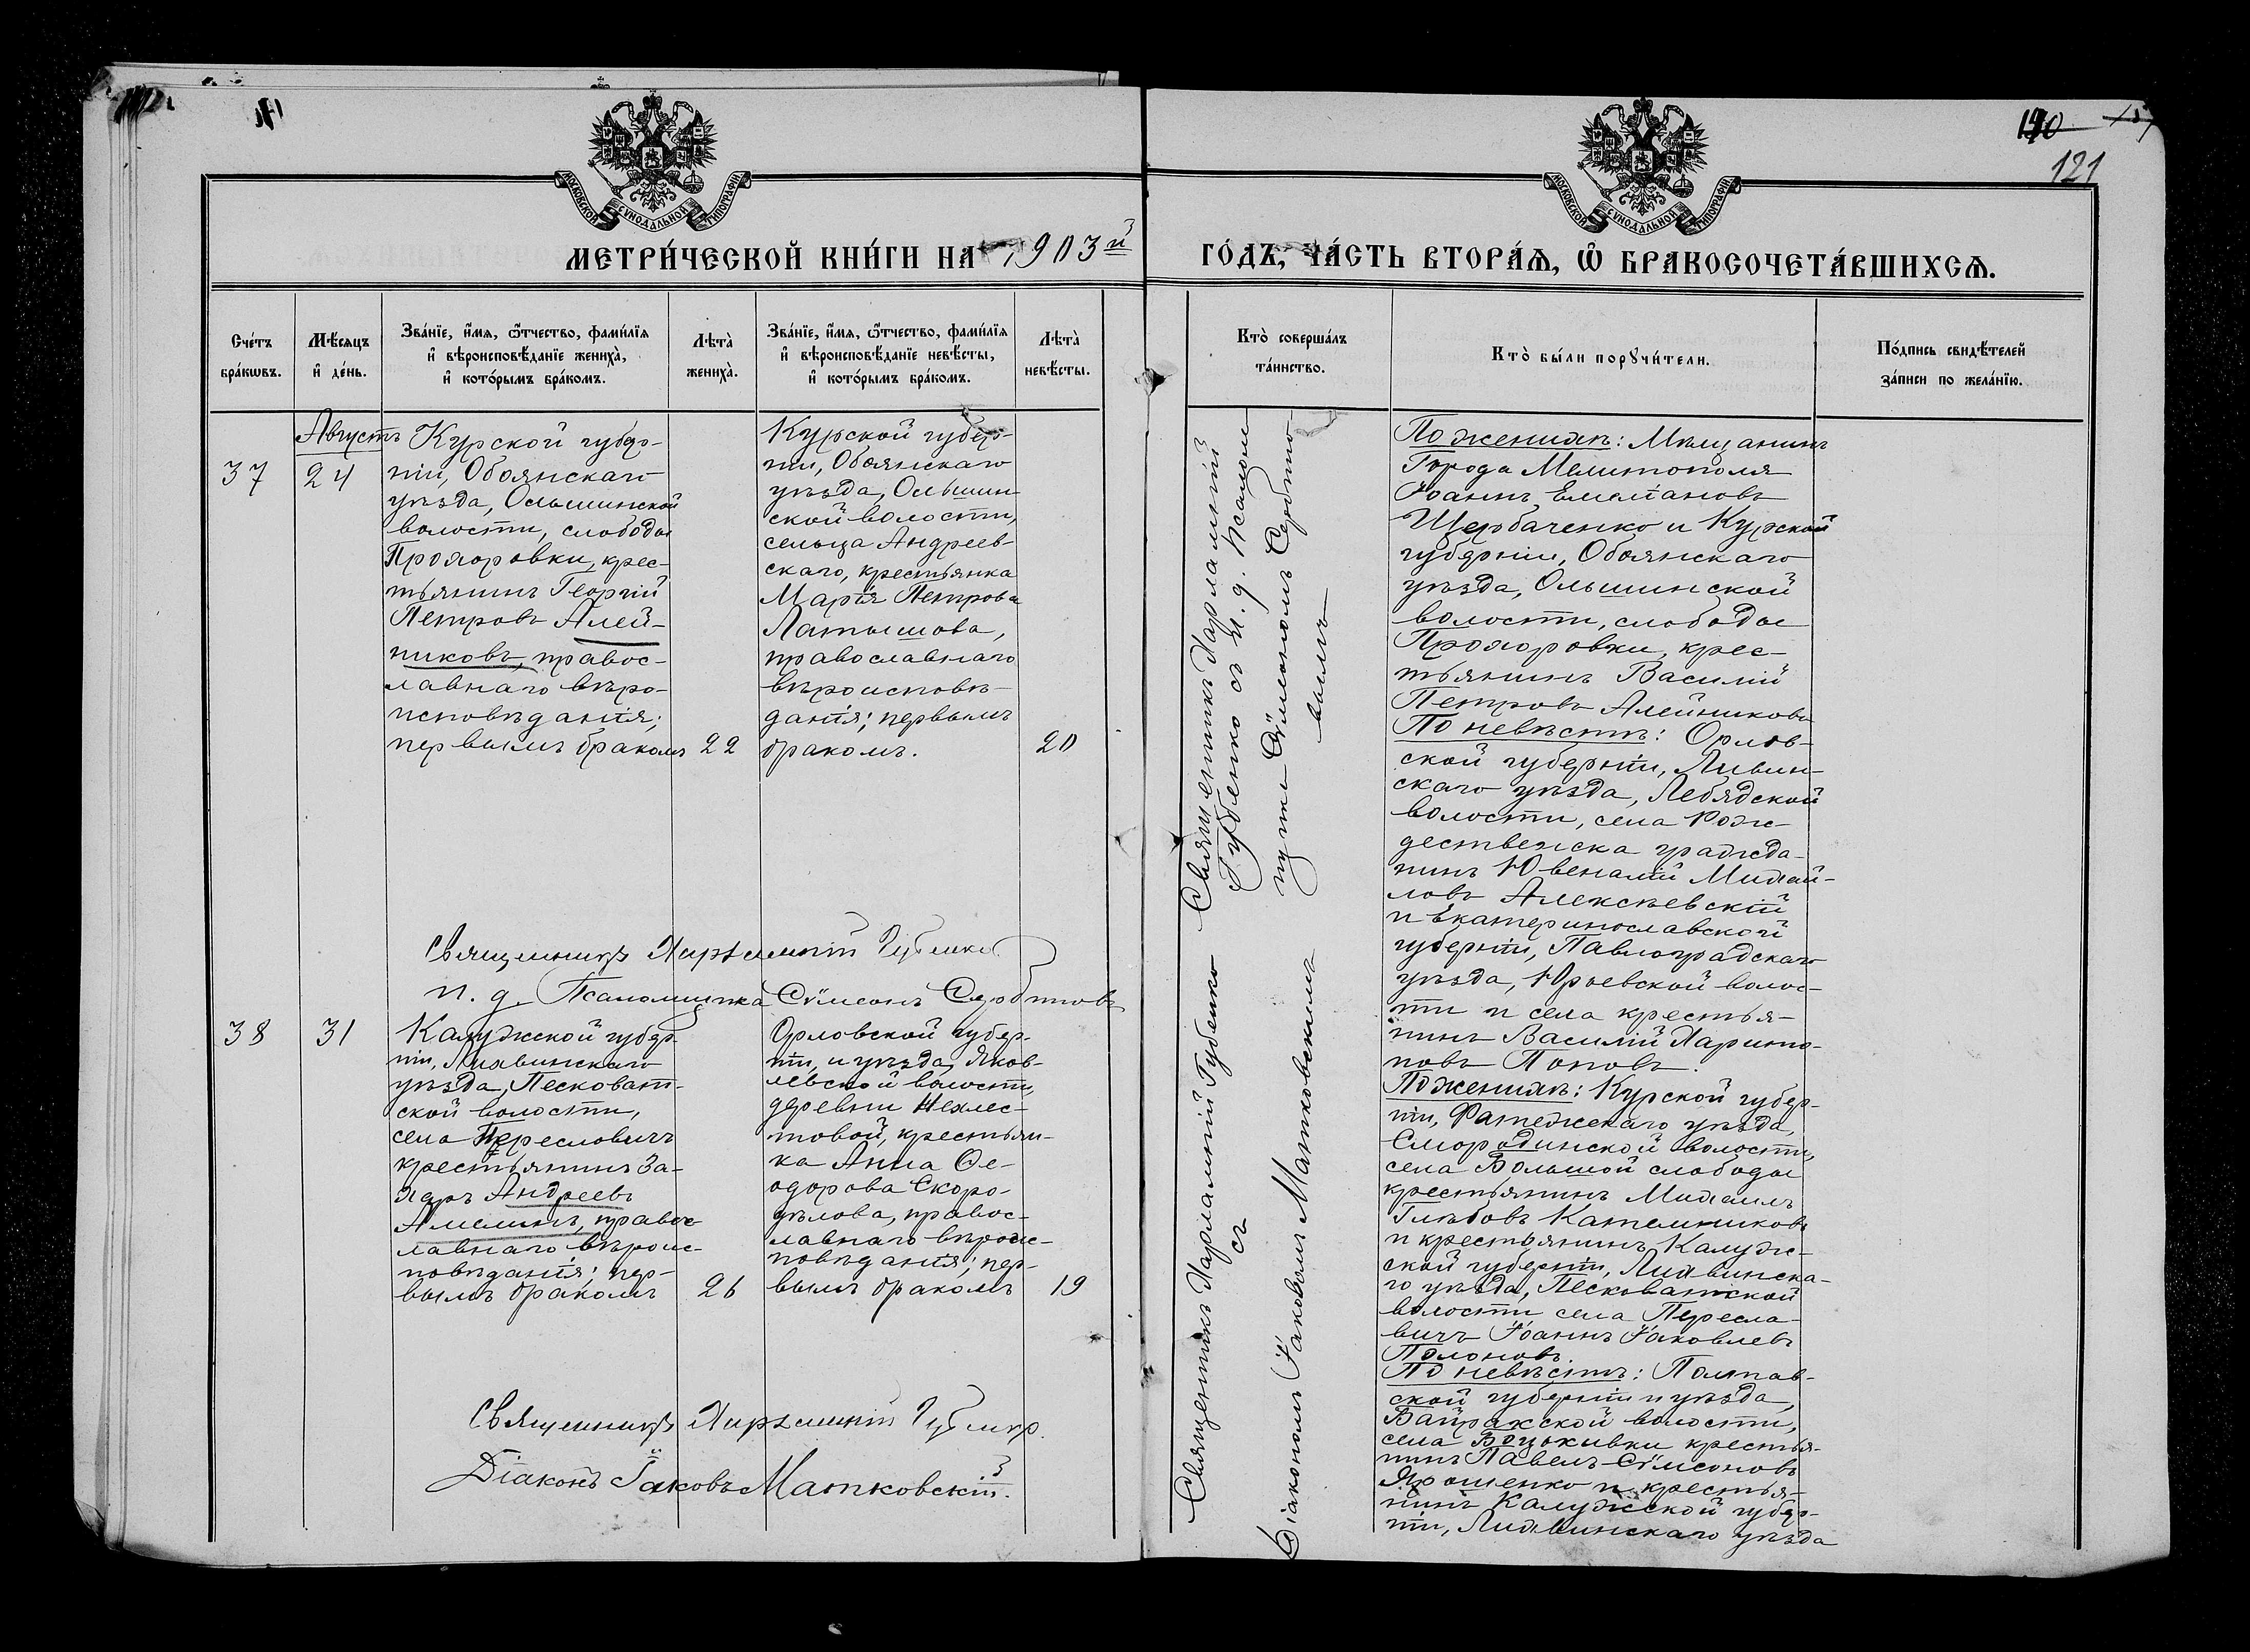 190 157
121
МОСКОВСКОЙ СѴНОДАЛЬНОЙ ТИПОГРАФІИ
МОСКОВСКОЙ СѴНОДАЛЬНОЙ ТИПОГРАФІИ
МЕТРИ́ЧЕСКОЙ КНИ́ГИ НА 1903й
ГО́ДЪ, ЧА́СТЬ ВТОРА́Ѧ, Ѡ҆ БРАКОСОЧЕТА́ВШИХСѦ.
Сче́тъ
бра́кѡвъ.
Мѣ́сѧцъ
и҆ де́нь.
Зва́нїе, и҆́мѧ, ѻ҆́тчество, фами́лїѧ
и҆ вѣроисповѣ́данїе жениха̀,
и҆ кото́рымъ бра́комъ.
Лѣта̀
жениха̀.
Зва́нїе, и҆́мѧ, ѻ҆́тчество, фами́лїѧ
и҆ вѣроисповѣ́данїе невѣ́сты,
и҆ кото́рымъ бра́комъ.
Лѣта̀
невѣ́сты.
Кто̀ соверша́лъ
та́инство.
Кто̀ бы́ли порꙋчи́тели.
По́дпись свидѣ́телей
за́писи по жела́нїю.
37
Августъ
24
Курской губер-
ніи, Обоянскаго
уѣзда, Ольшинской
волости, слободы
Прохоровки, крес-
тьянинъ Георгій
Петровъ Алей-
никовъ, правос-
лавнаго вѣро-
исповѣданія;
первымъ бракомъ
22
Курской губер-
ніи, Обоянскаго
уѣзда, Ольшин-
ской волости,
сельца Андреев-
скаго, крестьянка
Марія Петрова
Латышова,
православнаго
вѣроисповѣ-
данія; первымъ
бракомъ.
20
Священникъ Харлампій Губенко
и. д. Псаломщика Сѵмеонъ Сербиновъ
Священникъ Харлампій
Губенко съ и. д. псалом-
щика Сѵмеономъ Сербино-
вымъ
По женихѣ: Мѣщанинъ
Города Мелитополя
Іоаннъ Емеліановъ
Щербаченко и Курской
губерніи, Обоянскаго
уѣзда, Ольшинской
волости, слободы
Прохоровки, крес-
тьянинъ Василій
Петровъ Алейниковъ
По невѣстѣ: Орлов-
ской губерніи, Ливен-
скаго уѣзда, Лебядской
волости, села Рож-
дественска гражда-
нинъ Ювеналій Михай-
ловъ Алексѣевскій
и Екатеринославской
губерніи, Павлоградскаго
уѣзда, Юрьевской волос-
ти и села крестья-
нинъ Василій Харито-
новъ Поповъ.
38
31
Калужской губер-
ніи, Лихвинскаго
уѣзда, Песковат-
ской волости,
села Переславичъ
крестьянинъ За-
харъ Андреевъ
Амелинъ, правос-
лавнаго вѣроис-
повѣданія; пер-
вымъ бракомъ
26
Орловской губер-
ніи, и уѣзда, Яков-
левской волости,
деревни Нехлес-
товой, крестьян-
ка Анна Ѳе-
одорова Скоро-
дѣлова, правос-
лавнаго вѣроис-
повѣданія; пер-
вымъ бракомъ
19
Священникъ Харлампій Губенко.
Діаконъ Іаковъ Матковскій.
Священникъ Харлампій Губенко
съ
Діакономъ Іаковомъ Матковскимъ
По женихѣ: Курской губер-
ніи, Фатежскаго уѣзда,
Смородинской волости,
села Большой слободы
крестьянинъ Михаилъ
Глѣбовъ Кательниковъ
и крестьянинъ Калуж-
ской губерніи, Лихвинска-
го уѣзда, Песковатской
волости села Пересла-
вичъ Іоаннъ Іаковлевъ
Полоновъ.
По невѣстѣ: Полтав-
ской губерніи и уѣзда,
Байракской волости,
села крестья-
нинъ Павелъ Сѵмеоновъ
Ярошенко и крестья-
нинъ Калужской губер-
ніи, Лихвинскаго уѣзда